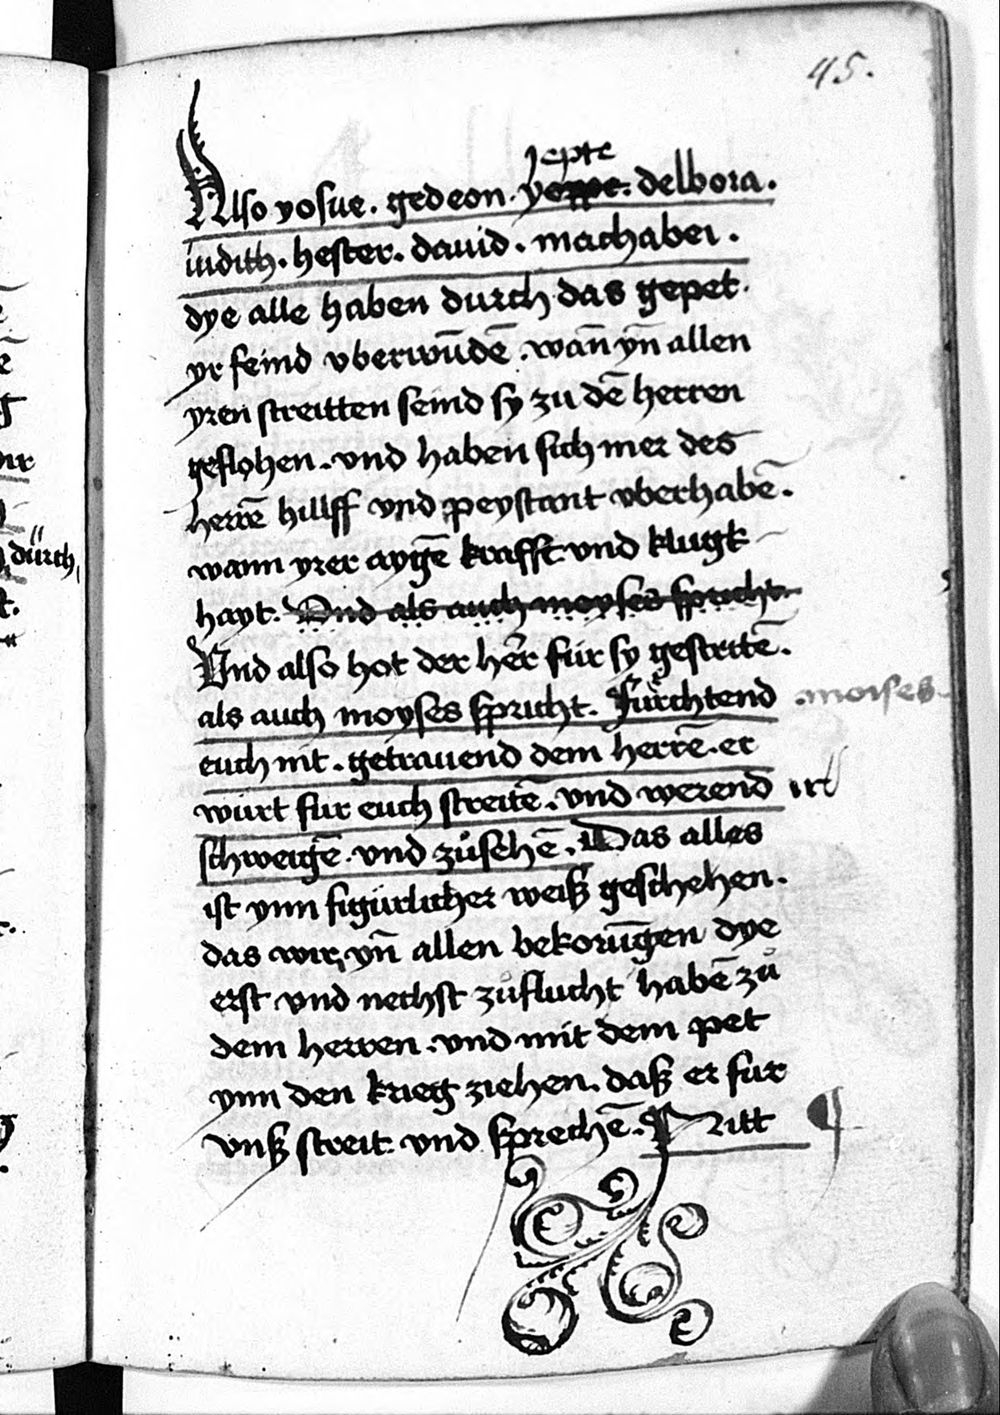 45.
Jepte
Also yosue. gedeon. delbora.
iudith. hester. dauid. machabei.
dye alle haben durch das gepet.
yr feind vberwūdē. wan̄ yn̄ allen
yren streitten seind sy zu dē herren
geflohen. vnd haben sich mer des
herrē hillff vnd peystant vberhabē.
wann yrer aygē krafft vnd klugk
hayt. Vnd als auch moyses spricht.
Vnd also hot der her̄ für sy gestritē.
als auch moyses spricht. Fürchtend .moises.
euch nit. getrauend dem herrē. er
würt für euch streitē. vnd werend irt
schweigē. vnd zůsehē. Das alles
ist ynn figürlicher weiß geschehen.
das wir yn̄ allen bekorūgen dye
erst vnd nechst zůflucht habē zů
dem herren. vnd mit dem pet
ynn den krieg ziehen. daß er fur
vnß streit. vnd sprechē. Nitt ¶
dürch